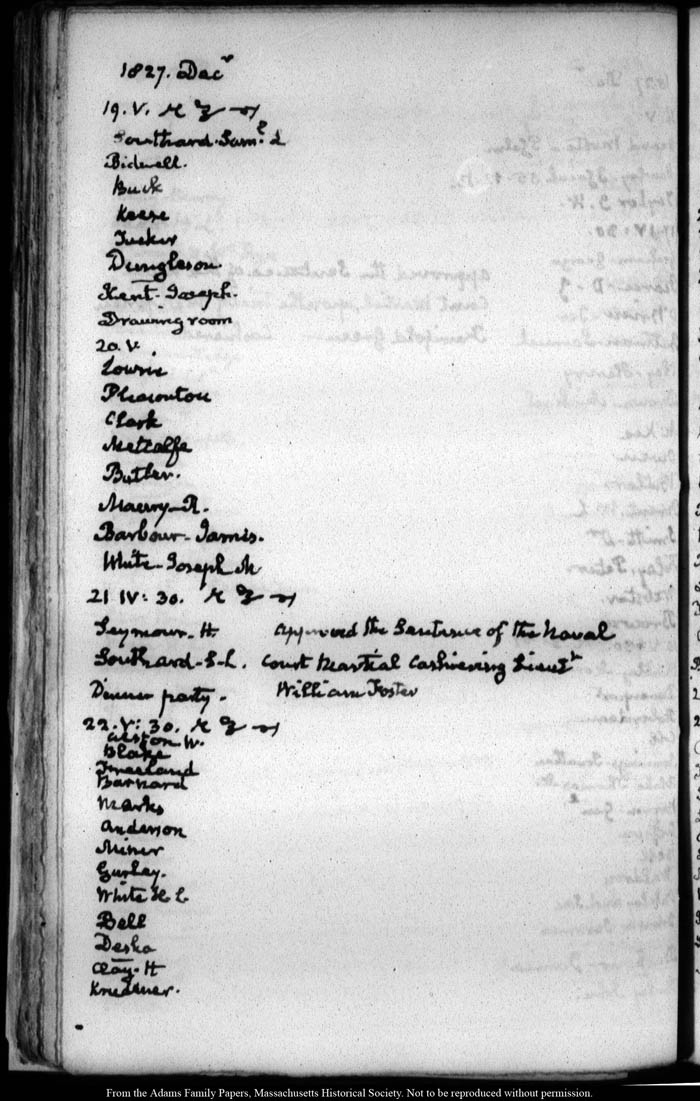 1827. Decr
19. V.
Southard. Saml. L
Bidwell.
Buck
Keese
Tucker
Dunglison
Kent-Joseph.
Drawing room
20. V.
Lowrie
Pleasonton
Clark
Metcalfe
Butler.
Maury-R.
Barbour-James.
White-Joseph M
21 IV: 30.
Seymour. H. approved the Sentence of the Naval
Southard-S-L. Court Martial Cashiering Lieutt
Dinner party. William Foster
22. V: 30.
Alston W.
Blake
Barnard
Marks
Anderson
Miner
Gurley.
White
Bell
Desha
Clay-H
Krudener.
From the Adams Family Papers, Massachusetts Historical Society. Not to be reproduced without permission.